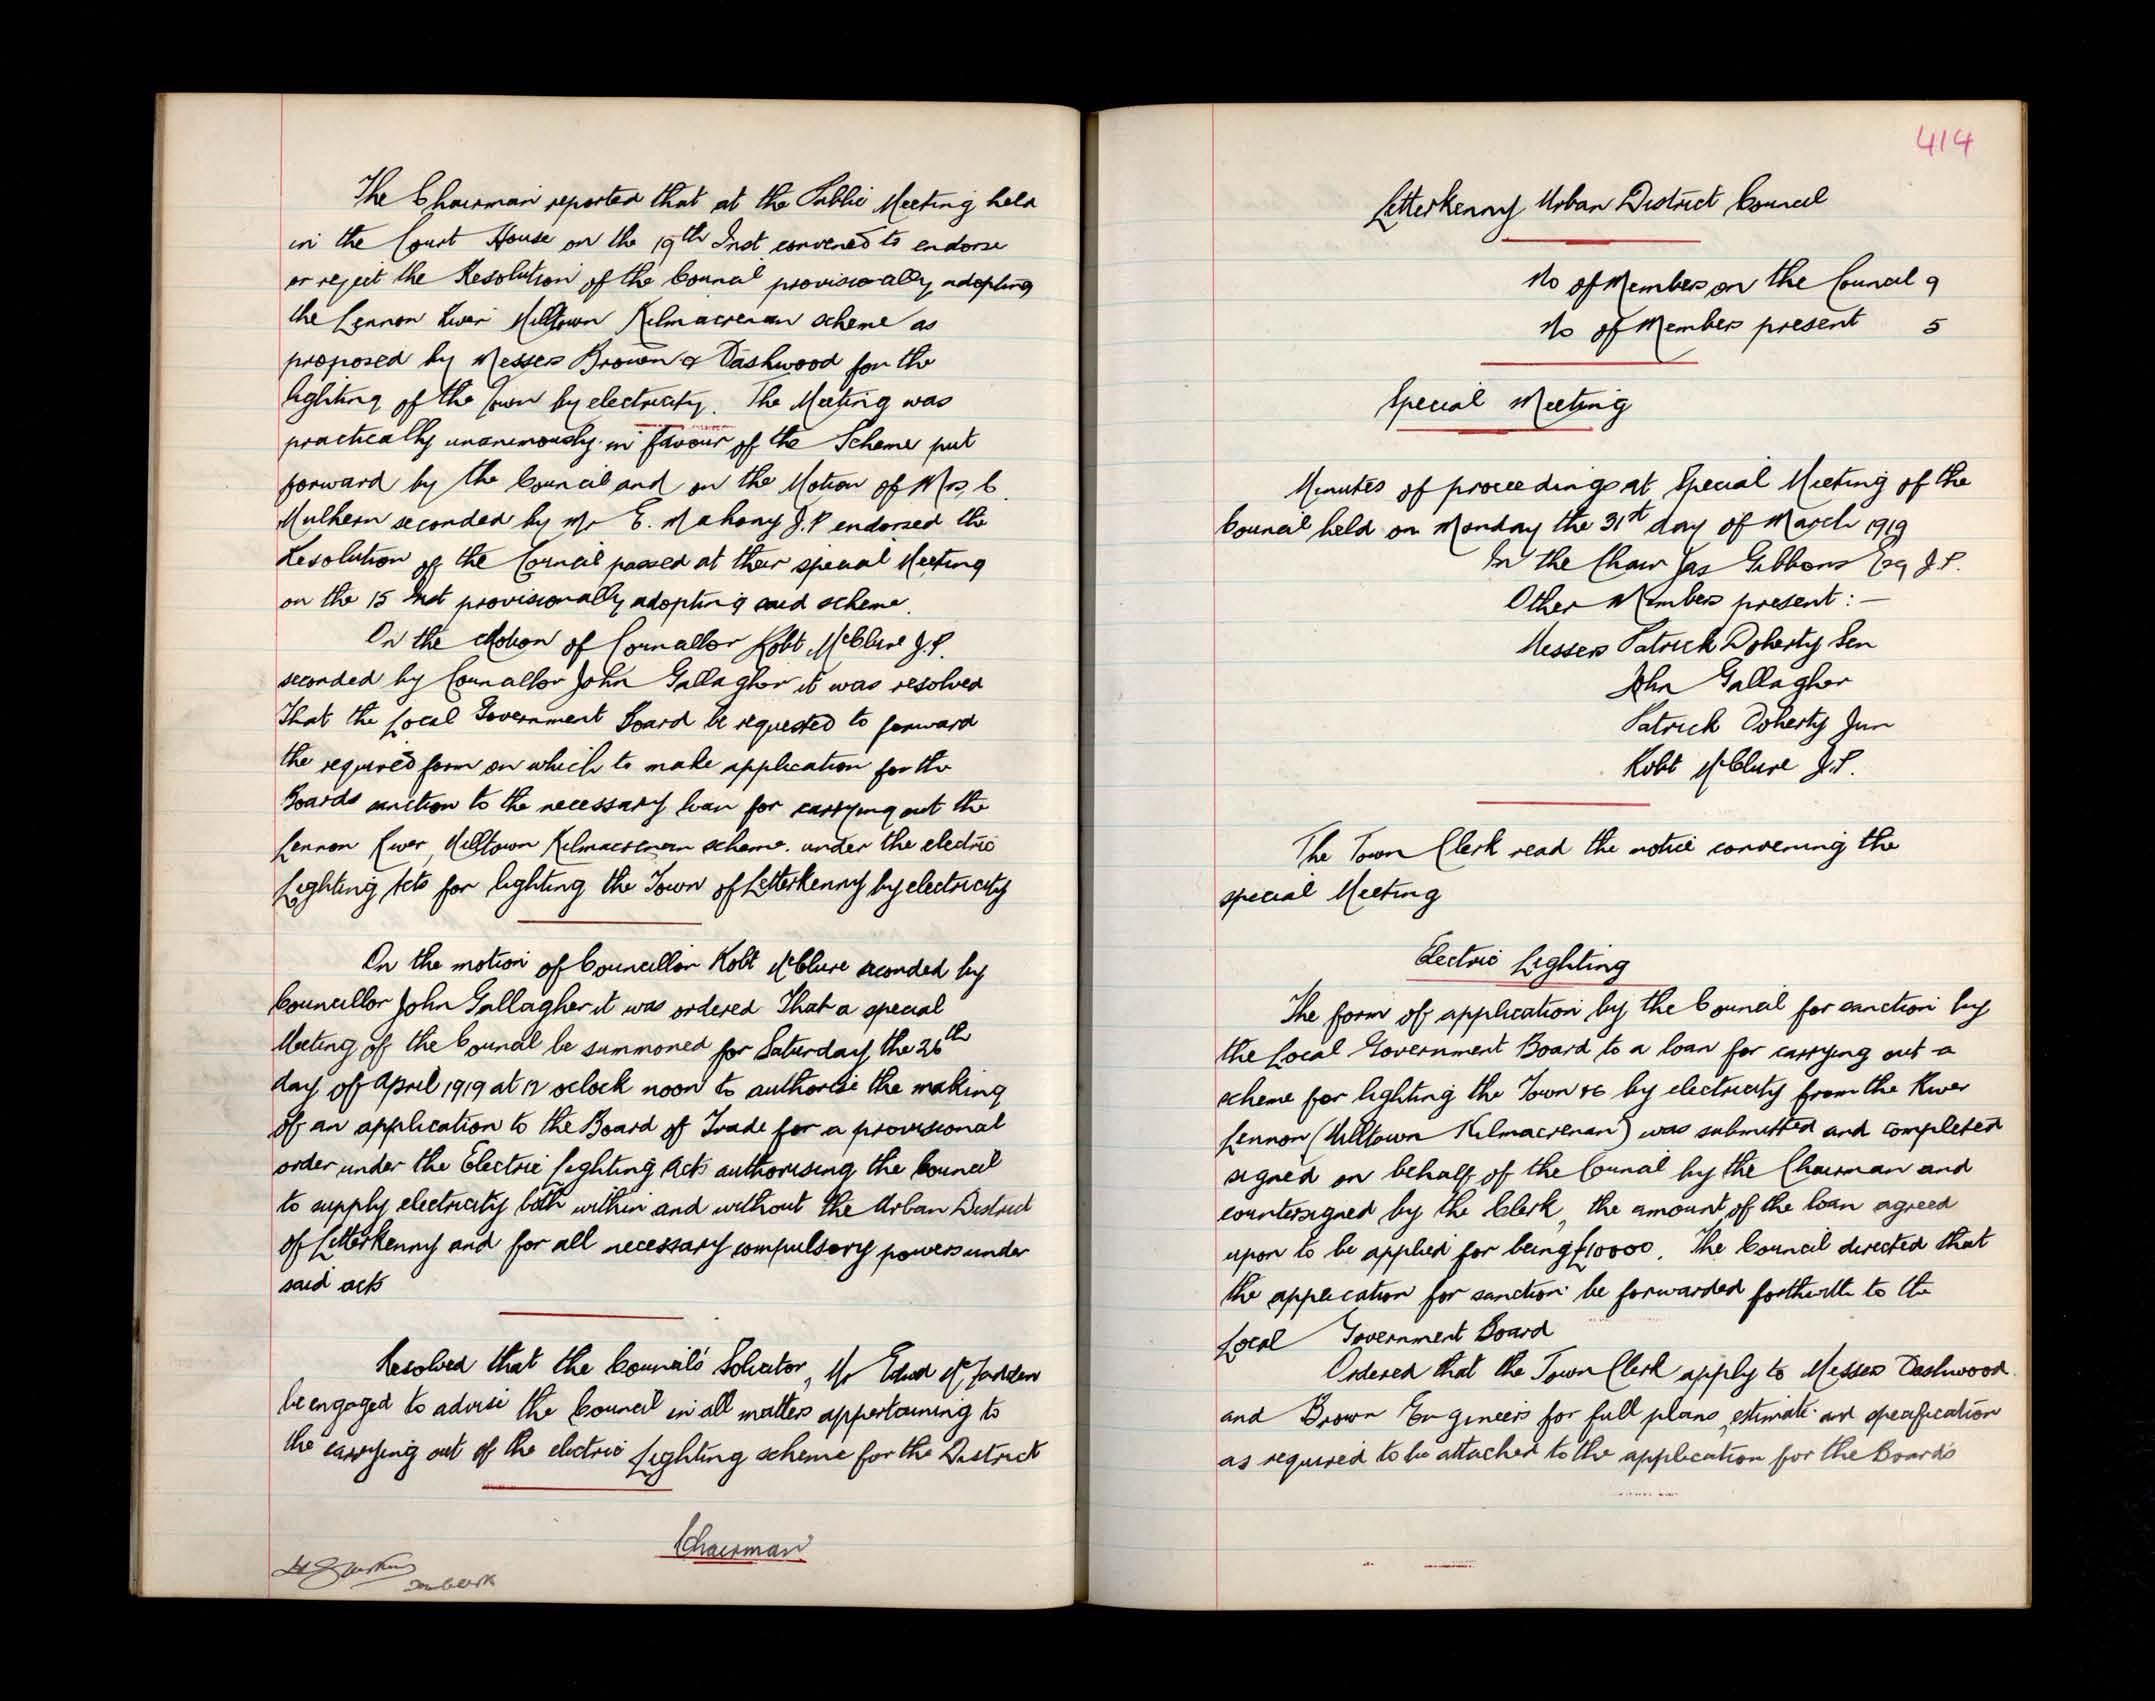 The Chairman reported that at the Public Meeting held
in the Court House on the 19th Inst convened to endorse
or reject the Resolution of the Council provisionally adopting
the Lennon River Milltown Kilmacrenan scheme as
proposed by Messers Brown & Dashwood for the
lighting of the Town by electricity. The Meeting was
practically unanimously in favour of the Scheme put
forward by the Council and on the Motion of Mrs, C.
Mulhern seconded by Mr E. Mahony J.P endorsed the
Resolution of the Council passed at their special Meeting
on the 15 Inst provisionally adopting said scheme.
On the Motion of Councillor Robt McClure J.P.
seconded by Councillor John Gallagher it was resolved
That the Local Government Board be requested to forward
the required form on which to make application for the
Boards sanction to the necessary loan for carrying out the
Lennon River, Milltown Kilmacrenan scheme. under the electric
Lighting Acts for lighting the Town of Letterkenny by electricity
On the motion of Councillor Robt McClure seconded by
Councillor John Gallagher it was ordered That a special
Meeting of the Council be summoned for Saturday the 26th
day of April 1919 at 12 oclock noon to authorise the making
of an application to the Board of Trade for a provisional
order under the Electric Lighting Acts authorising the Council
to supply electricity both within and without the Urban District
of Letterkenny and for all necessary compulsory powers under
said acts
Resolved that the Council's Solicitor, Mr Edwd McFadden
be engaged to advise the Council in all matters appertaining to
the carrying out of the electric Lighting scheme for the District
Chairman
414
Letterkenny Urban District Council
No of Members on the Council 9
No of Members present 5
Special Meeting
Minutes of proceedings at Special Meeting of the
Council held on Monday the 31st day of March 1919
In the Chair Jas Gibbons Esq J.P.
Other Members present: —
Messers Patrick Doherty Sen
John Gallagher
Patrick Doherty Jun
Robt McClure J.P.
The Town Clerk read the notice convening the
special Meeting
Electric Lighting
The form of application by the Council for sanction by
the Local Government Board to a loan for carrying out a
scheme for lighting the Town &c by electricity from the River
Lennon (Milltown Kilmacrenan) was submitted and completed
signed on behalf of the Council by the Chairman and
countersigned by the Clerk, the amount of the loan agreed
upon to be applied for being £10000. The Council directed that
the application for sanction be forwarded forthwith to the
Local Government Board
Ordered that the Town Clerk apply to Messers Dashwood
and Brown Engineers for full plans, estimate and specification
as required to be attached to the application for the Boards